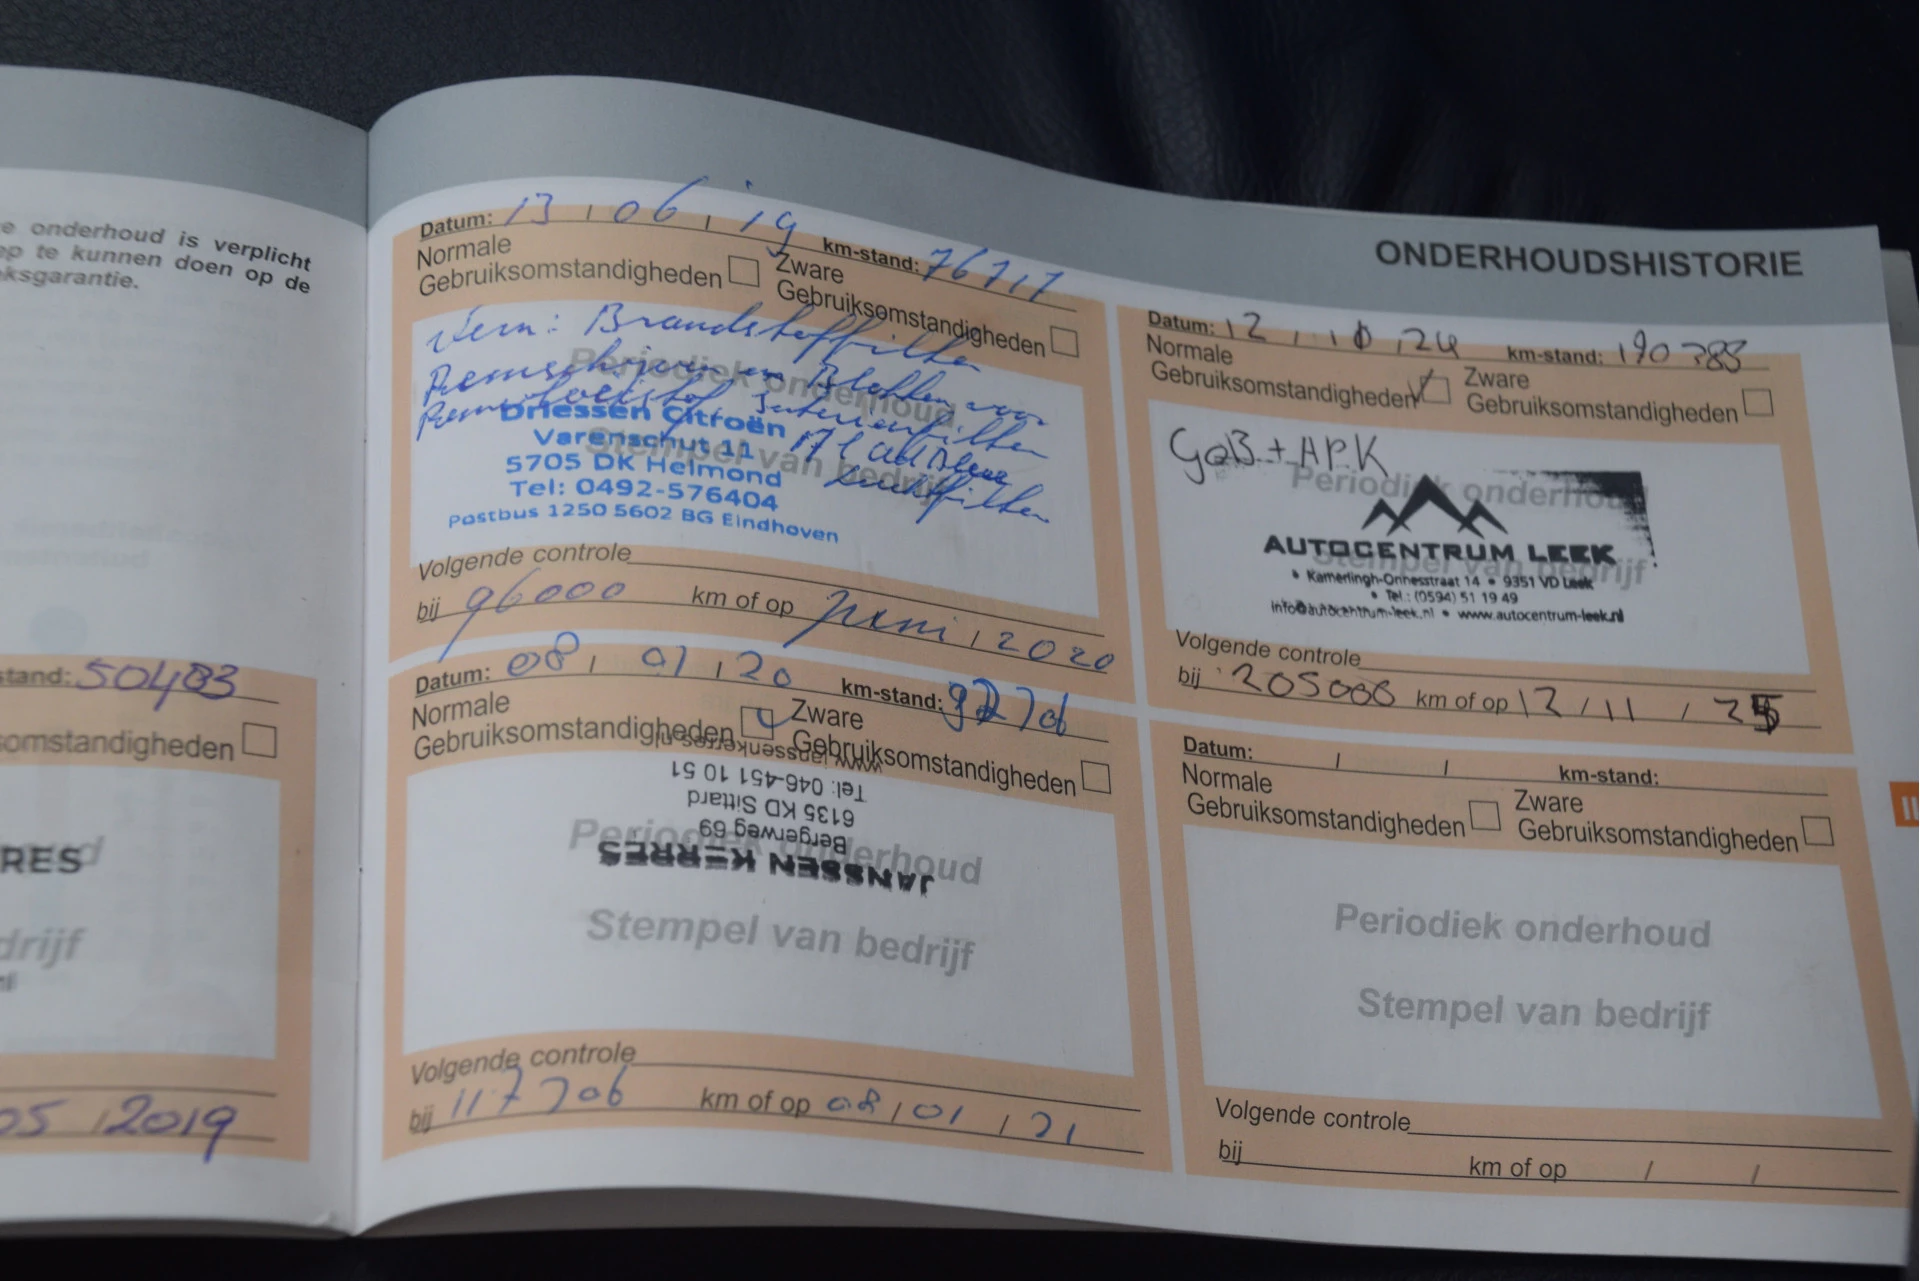 e onderhoud is verplicht
ep te kunnen doen op de
eksgarantie.
stand: 50483
omstandigheden
RES
drijf
05 / 2019
ONDERHOUDSHISTORIE
Datum: 13 / 06 / 19 km-stand: 76717
Normale
Gebruiksomstandigheden
Zware
Gebruiksomstandigheden
Vern: Brandstoffilter
Remschijven en Blokken voor
Remvloeistof, Interieurfilter
Luchtfilter
Periodiek onderhoud
Stempel van bedrijf
Driessen Citroën
Varenschut 11
5705 DK Helmond
Tel: 0492-576404
Postbus 1250 5602 BG Eindhoven
Volgende controle
bij 96000 km of op Juni / 2020
Datum: 08 / 01 / 20 km-stand:
Normale
Gebruiksomstandigheden
Zware
Gebruiksomstandigheden
JANSSEN KERRES
Bergerweg 69
6135 KD Sittard
Tel: 046-451 10 51
www.janssenkerres.nl
Periodiek onderhoud
Stempel van bedrijf
Volgende controle
bij 117706 km of op 08 / 01 / 21
Datum: 12 / 10 / 24 km-stand: 190385
Normale
Gebruiksomstandigheden
Zware
Gebruiksomstandigheden
GoB + APK
Periodiek onderhoud
Stempel van bedrijf
AUTOCENTRUM LEEK
• Kamerlingh-Onnesstraat 14 • 9351 VD Leek
• Tel.: (0594) 51 19 49
info@autocentrum-leek.nl • www.autocentrum-leek.nl
Volgende controle
bij 205000 km of op 12 / 11 / 25
Datum: / / km-stand:
Normale
Gebruiksomstandigheden
Zware
Gebruiksomstandigheden
Periodiek onderhoud
Stempel van bedrijf
Volgende controle
bij km of op / /